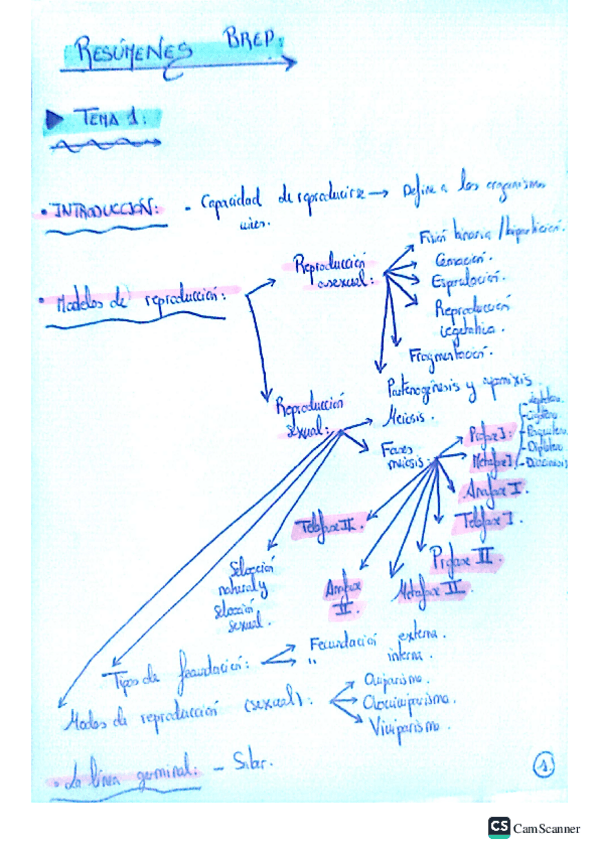 RESÚMENES BREP:
TEMA 1:
• INTRODUCCIÓN: - Capacidad de reproducirse → Define a los organismos
vivos.
• Modelos de reproducción:
Reproducción
asexual:
Fisión binaria / bipartición.
Gemación.
Esporulación.
Reproducción
vegetativa.
Fragmentación.
Partenogénesis y apomixis.
Reproducción
sexual:
Meiosis.
Fases
meiosis:
Profase I:
- Leptoteno
- Cigoteno
- Paquiteno
- Diploteno
- Diacinesis
Metafase I
Anafase I.
Telofase I.
Profase II.
Metafase II.
Anafase
II.
Telofase II.
Selección
natural y
selección
sexual.
Tipos de fecundación:
Fecundación externa.
" interna.
Modos de reproducción (sexual):
Oviparismo.
Ovoviviparismo.
Viviparismo.
• La línea germinal: - Saber.
1.
CS CamScanner